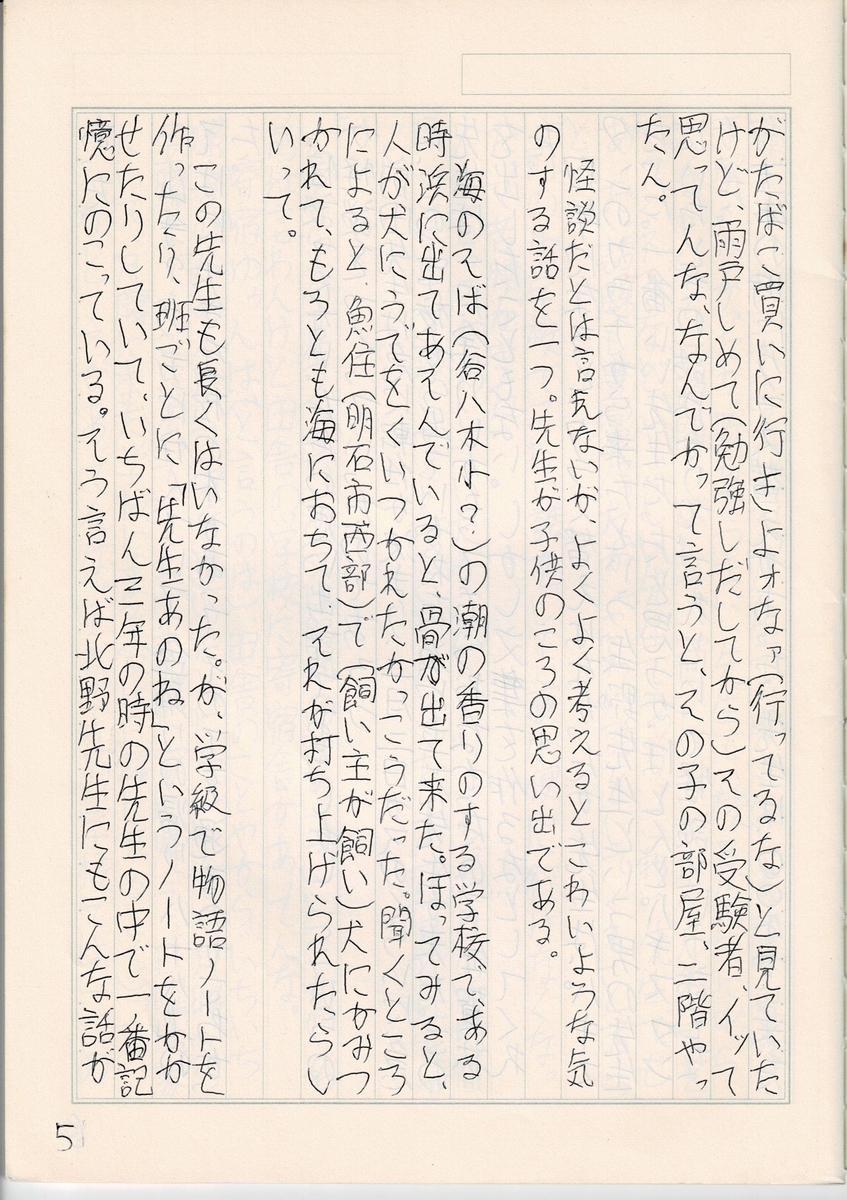 がたばこ買いに行きよオなァ(行ってるな)と見ていた
けど、雨戸しめて(勉強しだしてから)その受験者、イッて
思ってんな、なんでかって言うと、その子の部屋、二階やっ
たん。
怪談だとは言えないが、よくよく考えるとこわいような気
のする話を一つ。先生が子供のころの思い出である。
海のそば(谷八木小?)の潮の香りのする学校で、ある
時浜に出てあそんでいると、骨が出て来た。ほってみると、
人が犬にうでをくいつかれたかっこうだった。聞くところ
によると、魚住(明石市西部)で(飼い主が飼い)犬にかみつ
かれて、もろとも海におちて、それが打ち上げられたらし
いって。
この先生も長くはいなかった。が、学級で物語ノートを
作ったり、班ごとに「先生あのね」というノートをかか
せたりしていて、いちばん三年の時の先生の中で一番記
憶にのこっている。そう言えば北野先生にもこんな話が
5